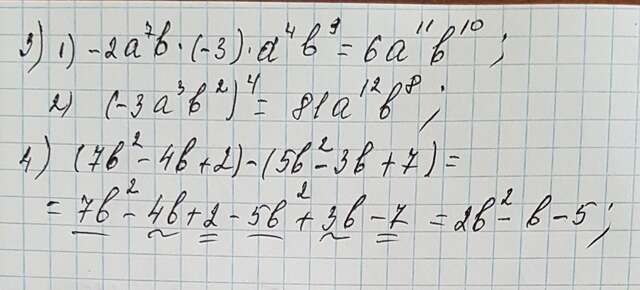 3) 1) -2a⁷b · (-3) · a⁴b⁹ = 6a¹¹b¹⁰ ;
2) (-3a³b²)⁴ = 81a¹²b⁸ ;
4) (7b² - 4b + 2) - (5b² - 3b + 7) =
= 7b² - 4b + 2 - 5b² + 3b - 7 = 2b² - b - 5 ;